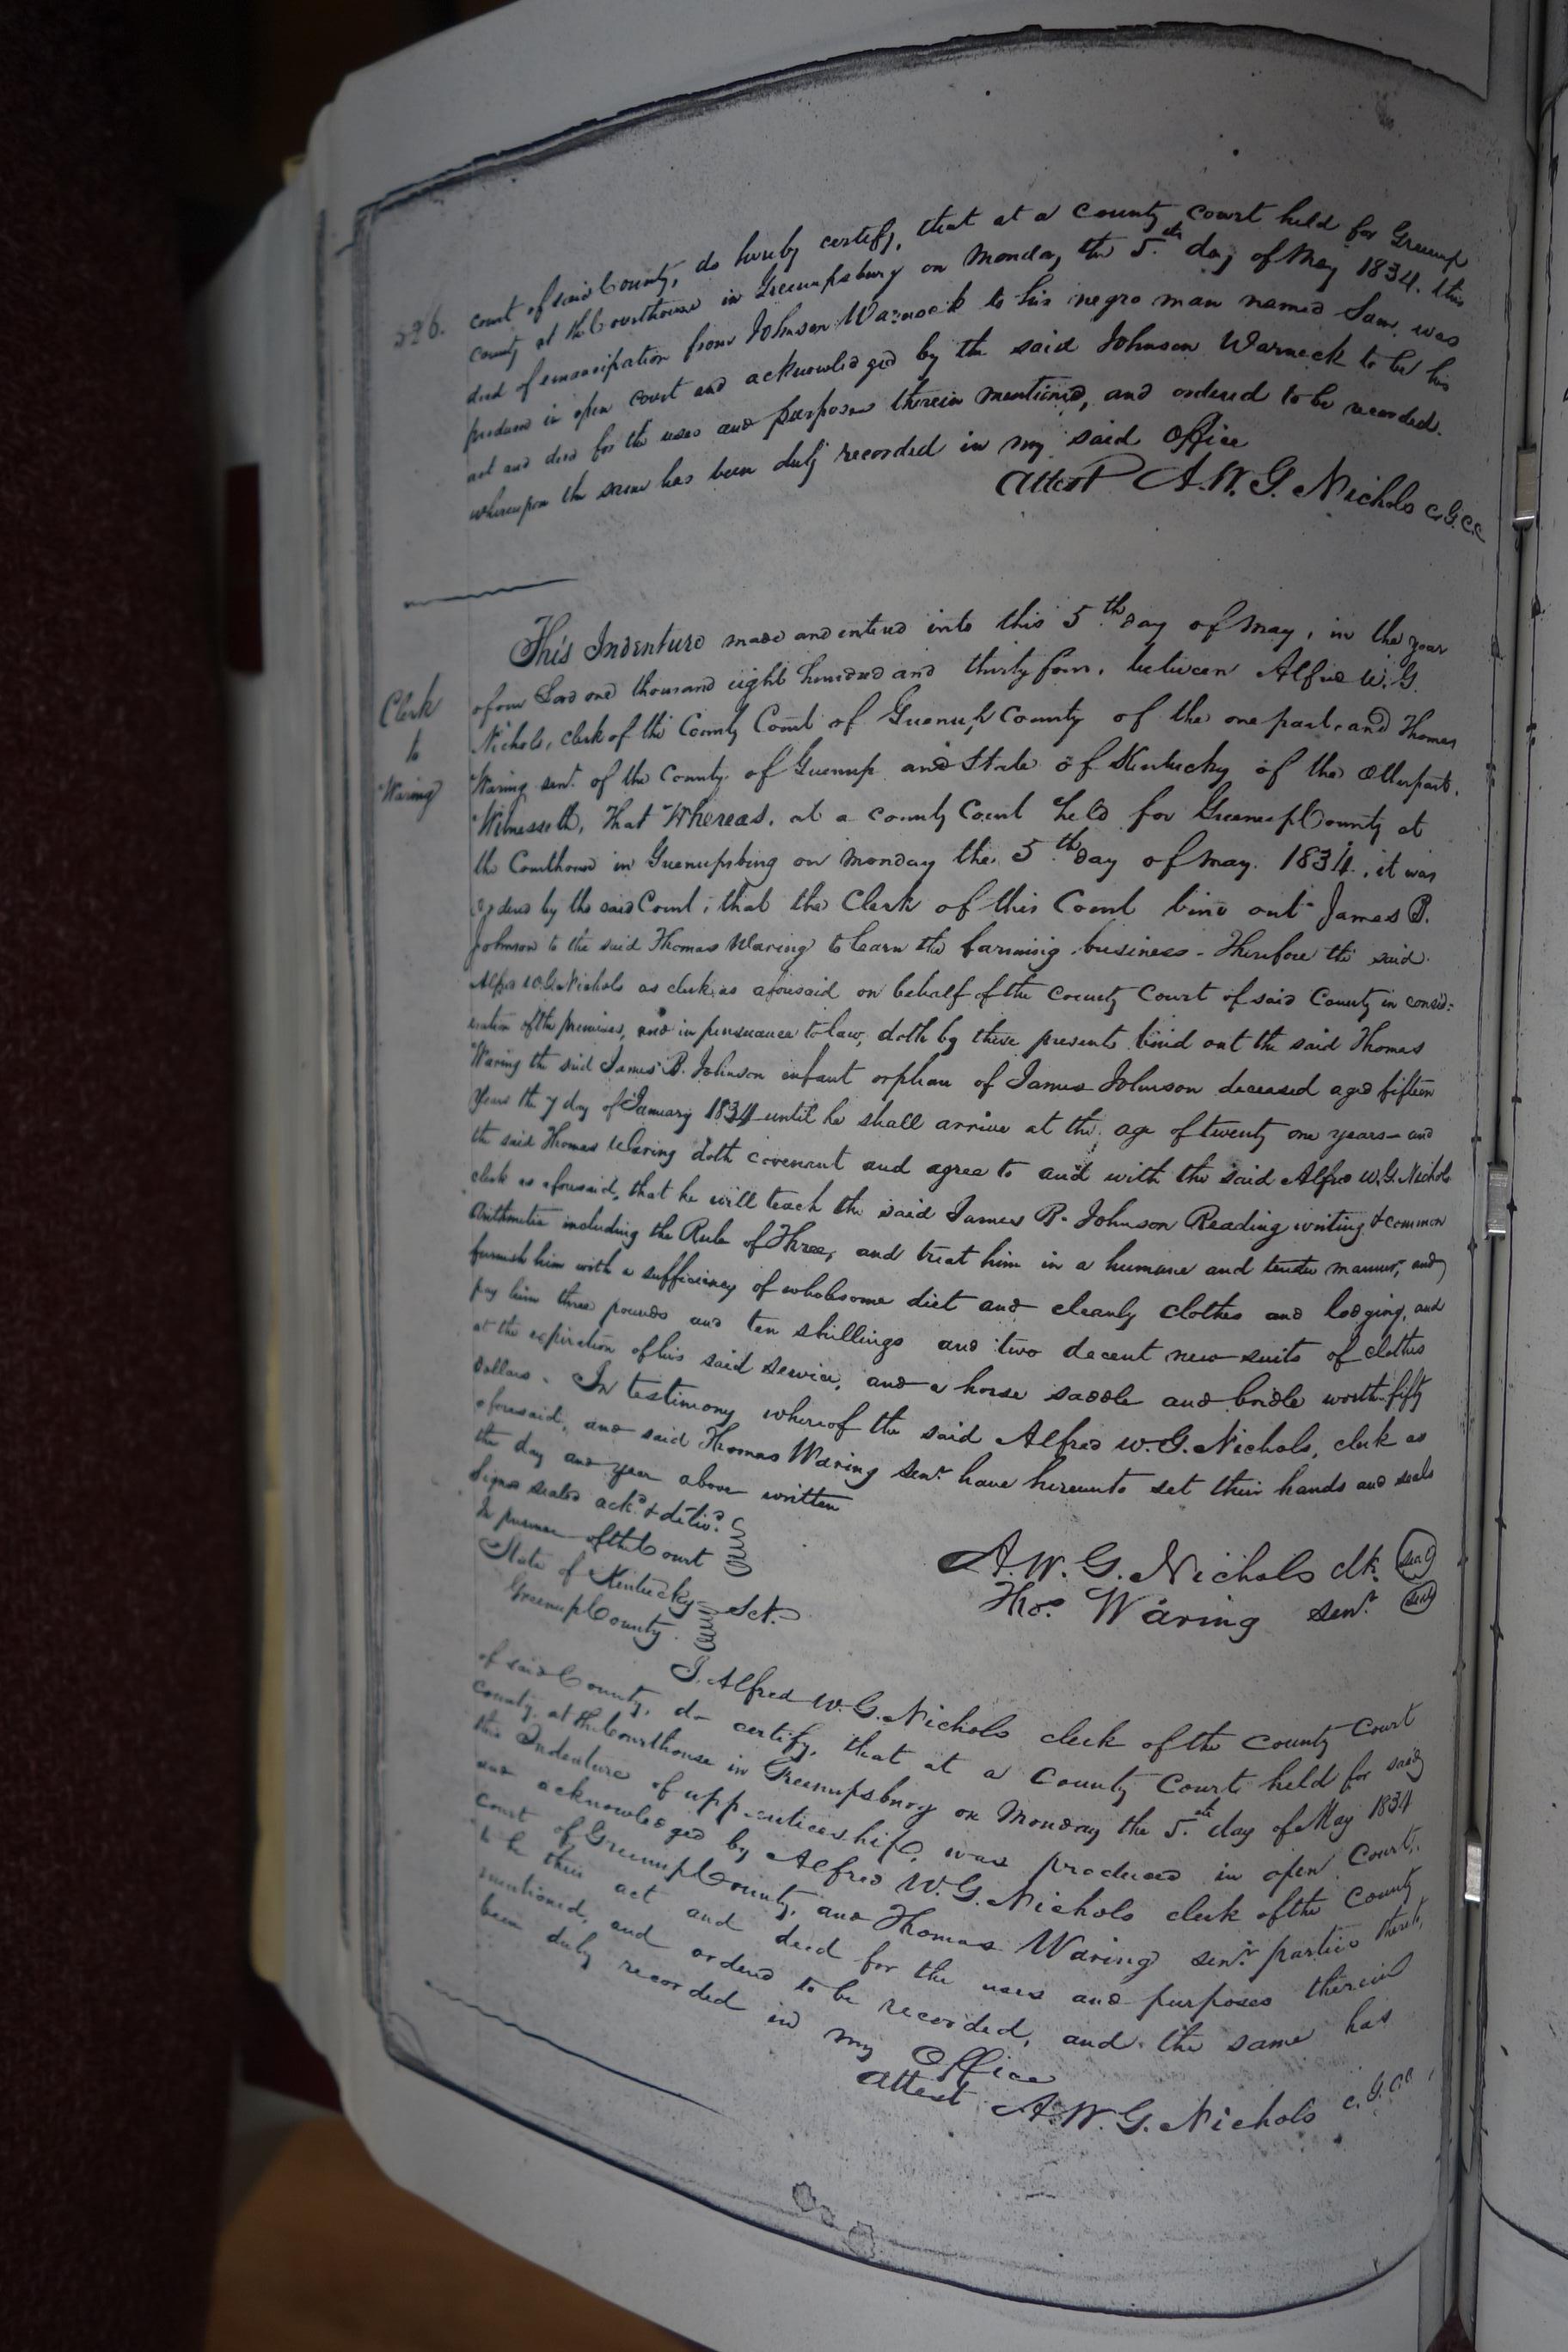 526.
court of said County, do hereby certify, that at a County Court held for Greenup
County at the Courthouse in Greenupsburg on Monday the 5th. day of May 1834. this
deed of emancipation from Johnson Warnock to his negro man named Sam, was
produced in open court and acknowledged by the said Johnson Warnock to be his
act and deed for the uses and purposes therein mentioned, and ordered to be recorded.
whereupon the same has been duly recorded in my said office
attest A. W. G. Nichols C.G.C.C
Clerk
to
Waring
This Indenture made and entered into this 5th. day of May, in the year
of our Lord one thousand eight hundred and thirty four, between Alfred W. G.
Nichols, clerk of the County Court of Greenup County of the one part, and Thomas
Waring senr. of the County of Greenup and State of Kentucky of the other part.
Witnesseth, That Whereas, at a County Court held for Greenup County at
the Courthouse in Greenupsburg on Monday the 5th. day of May. 1834, it was
ordered by the said Court, that the Clerk of this Court bind out James B.
Johnson to the said Thomas Waring to learn the farming business - Therefore the said
Alfred W. G. Nichols as clerk as aforesaid on behalf of the County Court of said County in consid-
eration of the premises, and in pursuance to law, doth by these presents bind out the said Thomas
Waring the said James B. Johnson infant orphan of James Johnson deceased aged fifteen
years the 7 day of January 1834 until he shall arrive at the age of twenty one years - and
the said Thomas Waring doth covenant and agree to and with the said Alfred W. G. Nichols
clerk as aforesaid, that he will teach the said James B. Johnson Reading writing & common
Arithmetic including the Rule of Three, and treat him in a humane and tender manner, and
furnish him with a sufficiency of wholesome diet and cleanly clothes and lodging, and
pay him three pounds and ten shillings and two decent new suits of clothes
at the expiration of his said service, and a horse saddle and bridle worth fifty
dollars. In testimony whereof the said Alfred W. G. Nichols, clerk as
aforesaid, and said Thomas Waring senr. have hereunto set their hands and seals
the day and year above written
Signed sealed ackd. & delivd.
In presence of the Court
A. W. G. Nichols clk. seal
Thos. Waring senr. seal
State of Kentucky
Greenup County. Sct.
I. Alfred W. G. Nichols clerk of the County Court
of said County, do certify, that at a County Court held for said
County, at the Courthouse in Greenupsburg on Monday the 5th. day of May 1834
this Indenture of apprenticeship, was produced in open Court,
and acknowledged by Alfred W. G. Nichols clerk of the County
Court of Greenup County, and Thomas Waring senr. parties thereto,
to be their act and deed for the uses and purposes therein
mentioned, and ordered to be recorded, and the same has
been duly recorded in my office
attest A. W. G. Nichols c.G.CC.